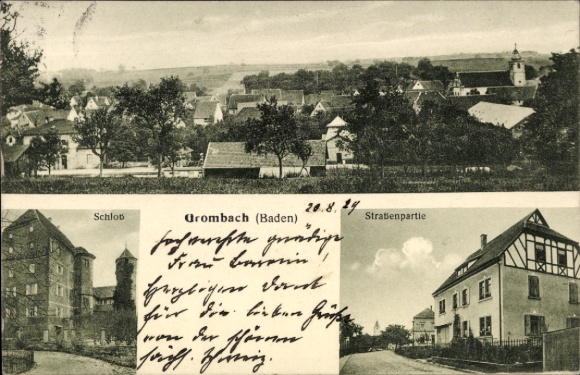 Schloß
Grombach (Baden)
Straßenpartie
20.8.29
Hochverehrte gnädige
Frau Baronin,
herzlichen Dank
für die lieben Grüße
von der schönen
sächs. Schweiz.